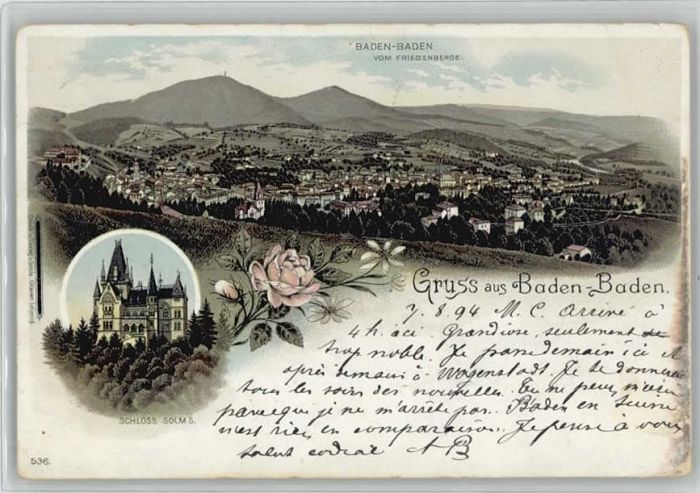 BADEN-BADEN
VOM FRIESENBERGE.
Gruss aus Baden-Baden.
7. 8. 94 M. C. Arrivé à
4 h. ici Grandiose, seulement
trop noble. Je passe demain ici &
après demain à Je te donnerai
tous les soirs des nouvelles. Tu ne peux m'écrire
parceque je ne m'arrête pas. Baden en Suisse
n'est rien en comparaison. Je pense à vous
salut cordial A B
SCHLOSS SOLMS.
536.